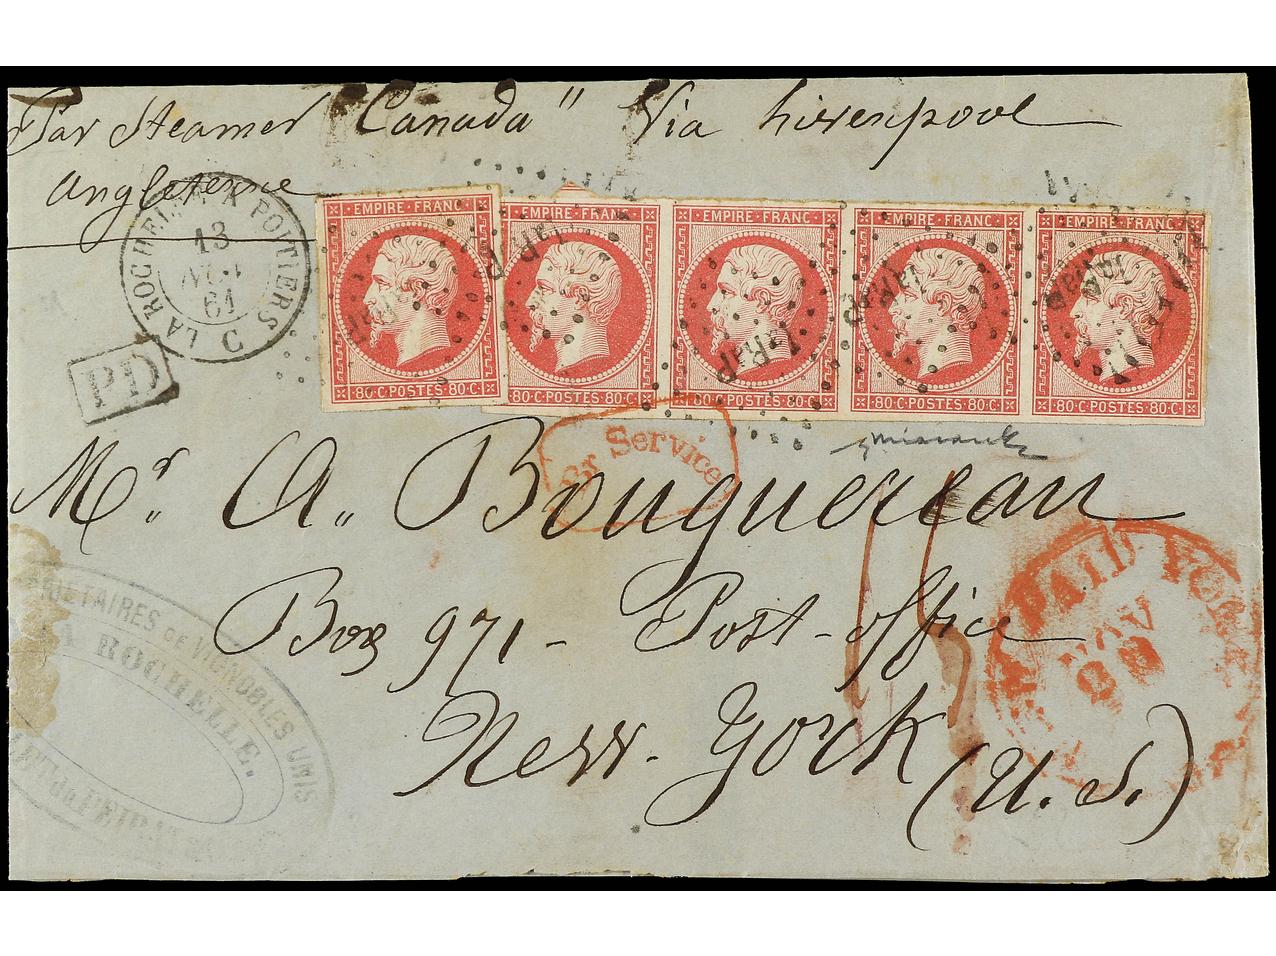 Par Steamer "Canada" Via Liverpool
Angleterre
LA ROCHELLE A POITIERS
13
NOV
61
C
PD
EMPIRE FRANC
80·C·POSTES·80·C·
EMPIRE FRANC
80·C·POSTES·80·C·
EMPIRE FRANC
80·C·POSTES·80·C·
EMPIRE FRANC
80·C·POSTES·80·C·
EMPIRE FRANC
80·C·POSTES·80·C·
LaRP
LaRP
LaRP
LaRP
Br Service
Mr. A. Bouguereau
Box 971 - Post-office
New-Yorck
(U.S.)
15
PAID
YORK
NOV
28
PROPRIETAIRES DE VIGNOBLES UNIS
LA ROCHELLE.